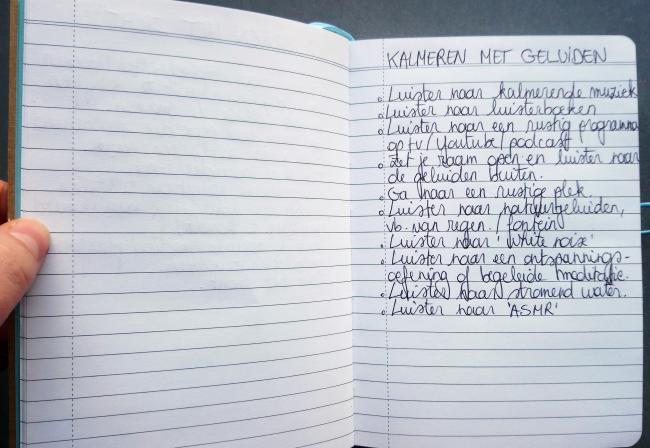 KALMEREN MET GELUIDEN
o Luister naar kalmerende muziek
o Luister naar luisterboeken
o Luister naar een rustig programma
op tv/Youtube/podcast
o Zet je raam open en luister naar
de geluiden buiten.
o Ga naar een rustige plek.
o Luister naar natuurgeluiden,
vb. van regen / fontein
o Luister naar 'White noise'
o Luister naar een ontspannings-
oefening of begeleide meditatie.
o Luister naar stromend water.
o Luister naar 'ASMR'